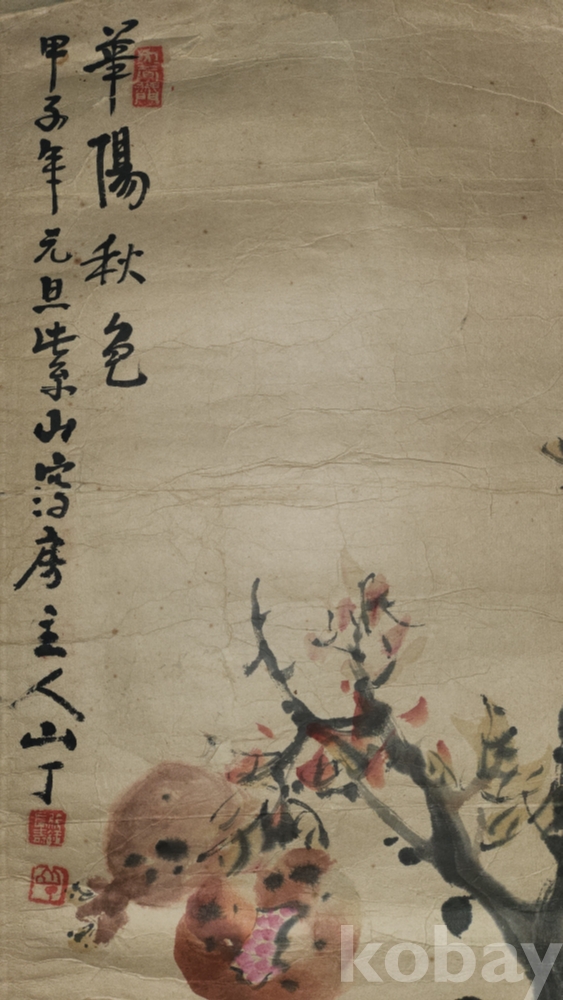 華陽秋色
甲子年元旦紫山房主人山丁
kobay